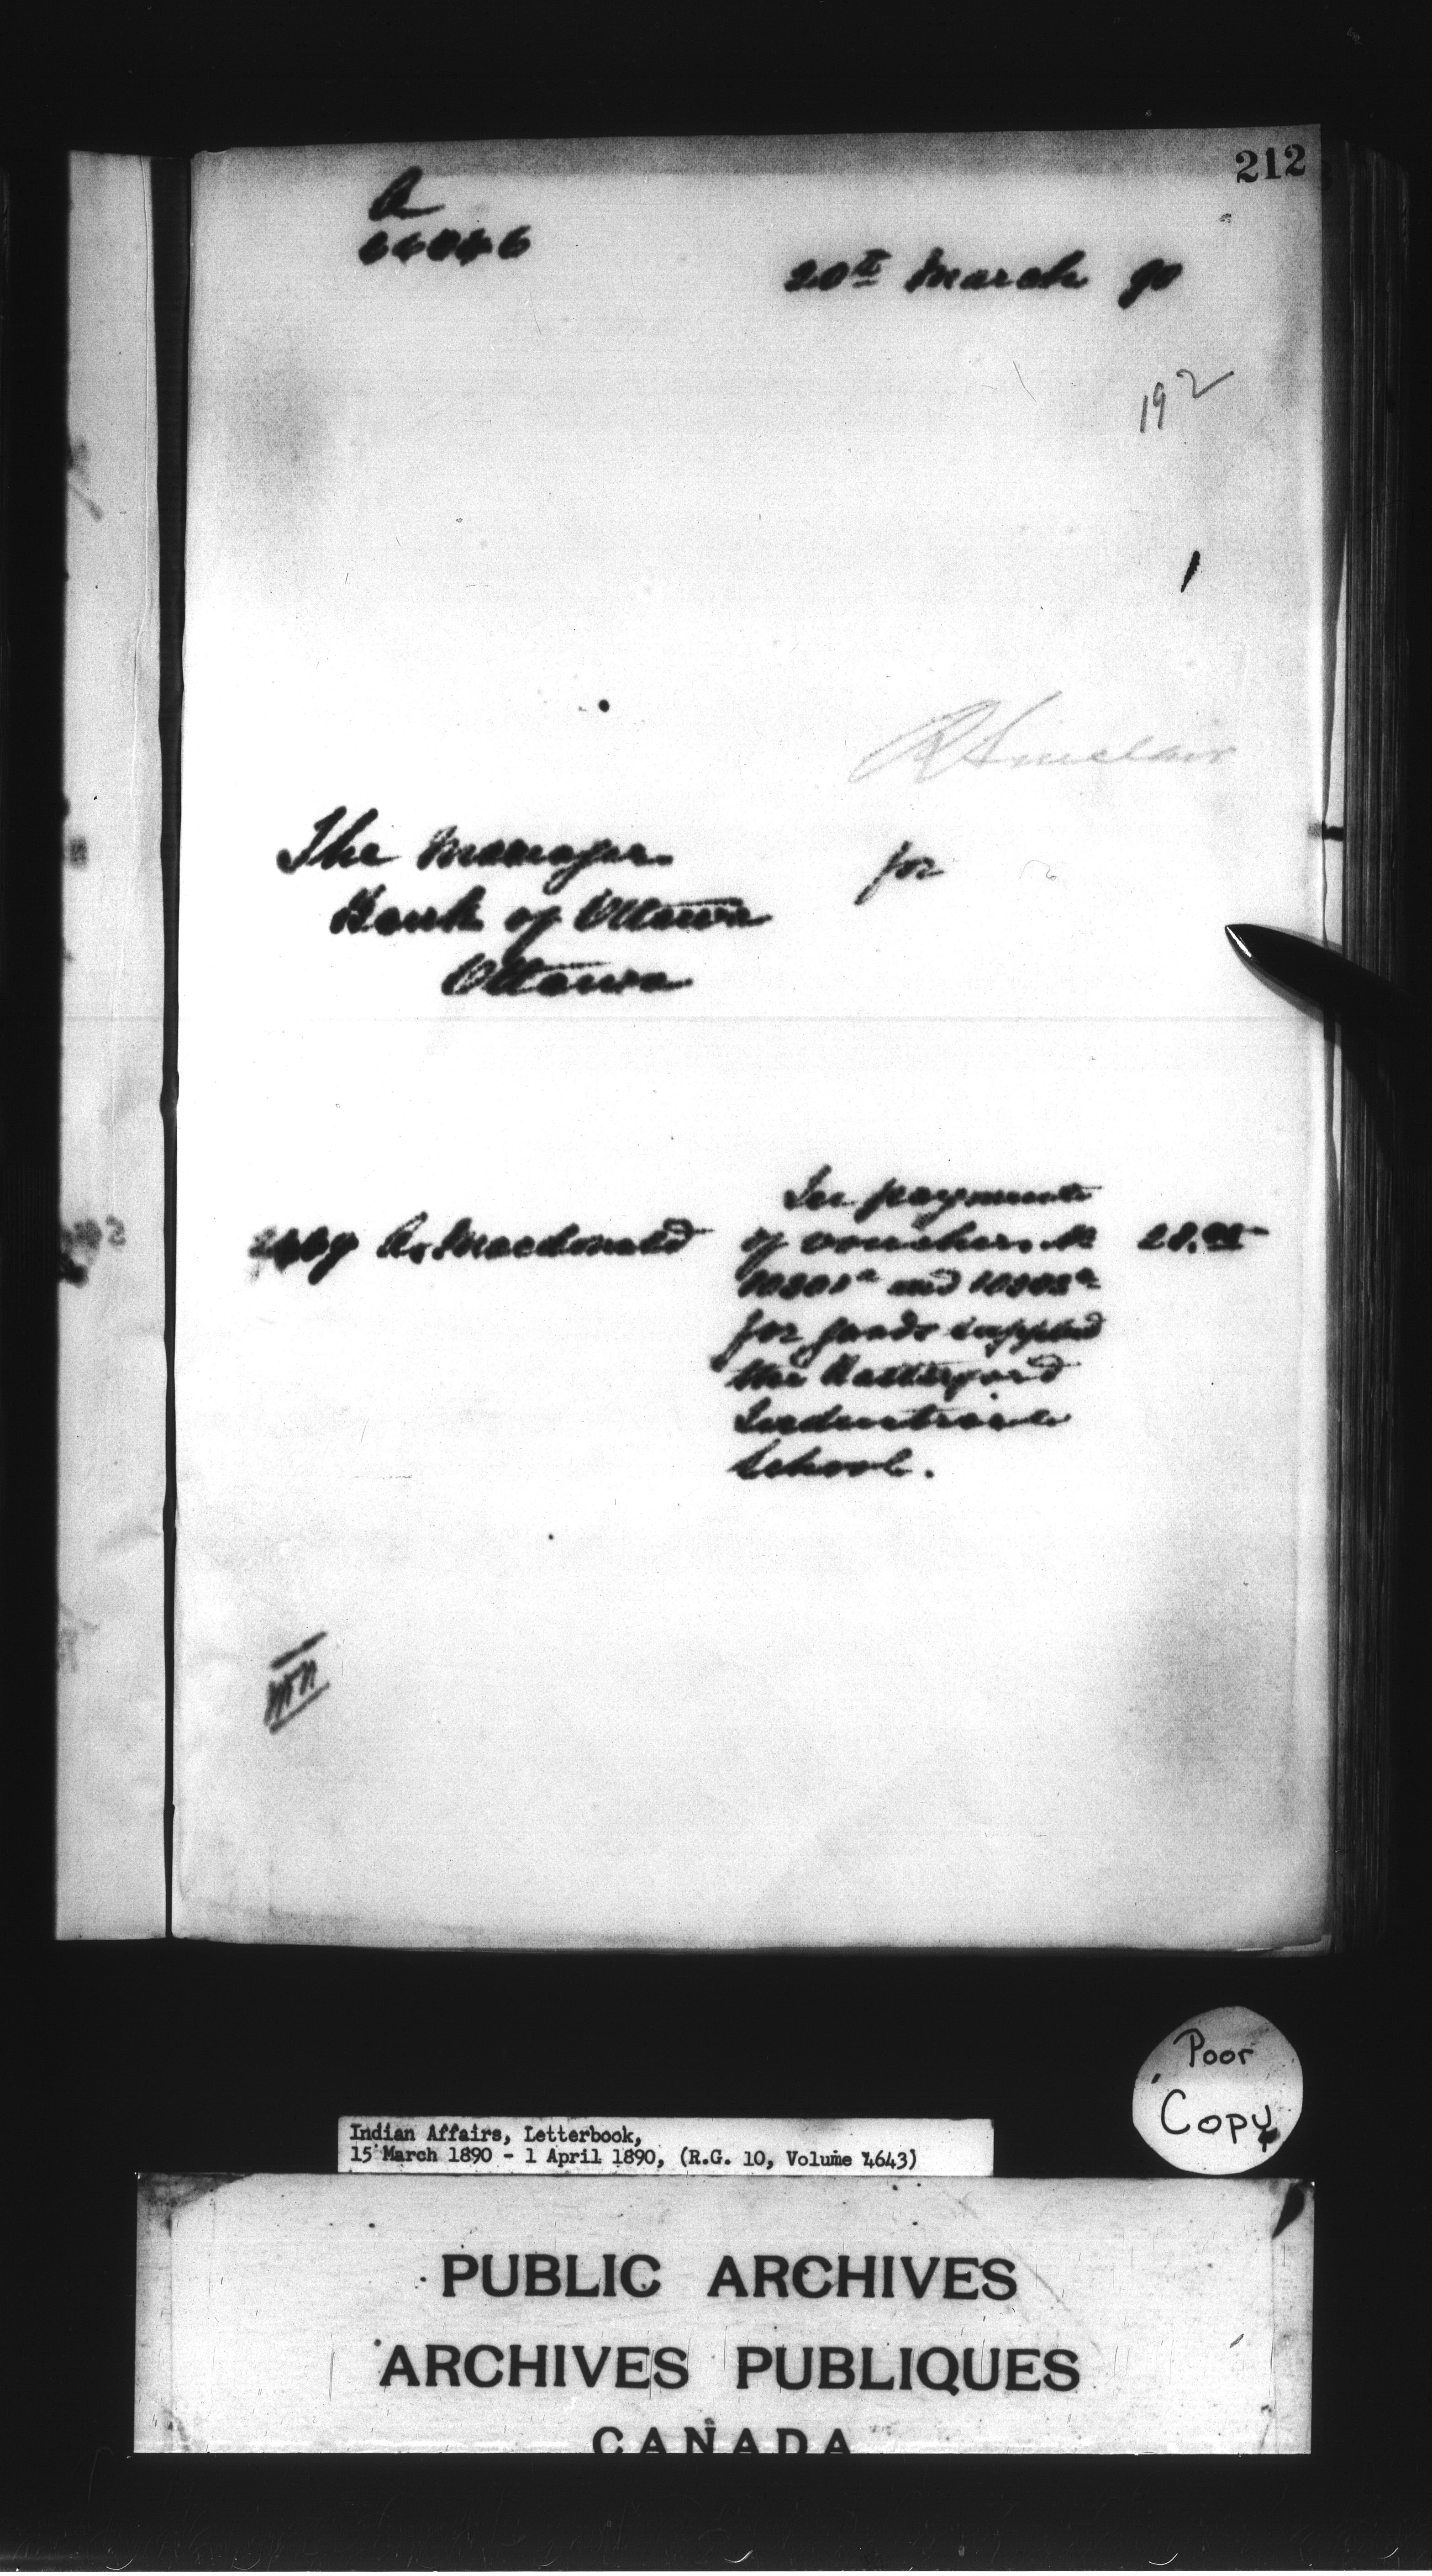 212
A
20th March 90
192
R Sinclair
The Manager
for
Bank of Ottawa
Ottawa
In payment
A. Macdonald of vouchers
and
for goods supplied
the Battleford
Industrial
School.
Poor
Copy
Indian Affairs, Letterbook,
15 March 1890 - 1 April 1890, (R.G. 10, Volume 4643)
PUBLIC ARCHIVES
ARCHIVES PUBLIQUES
CANADA